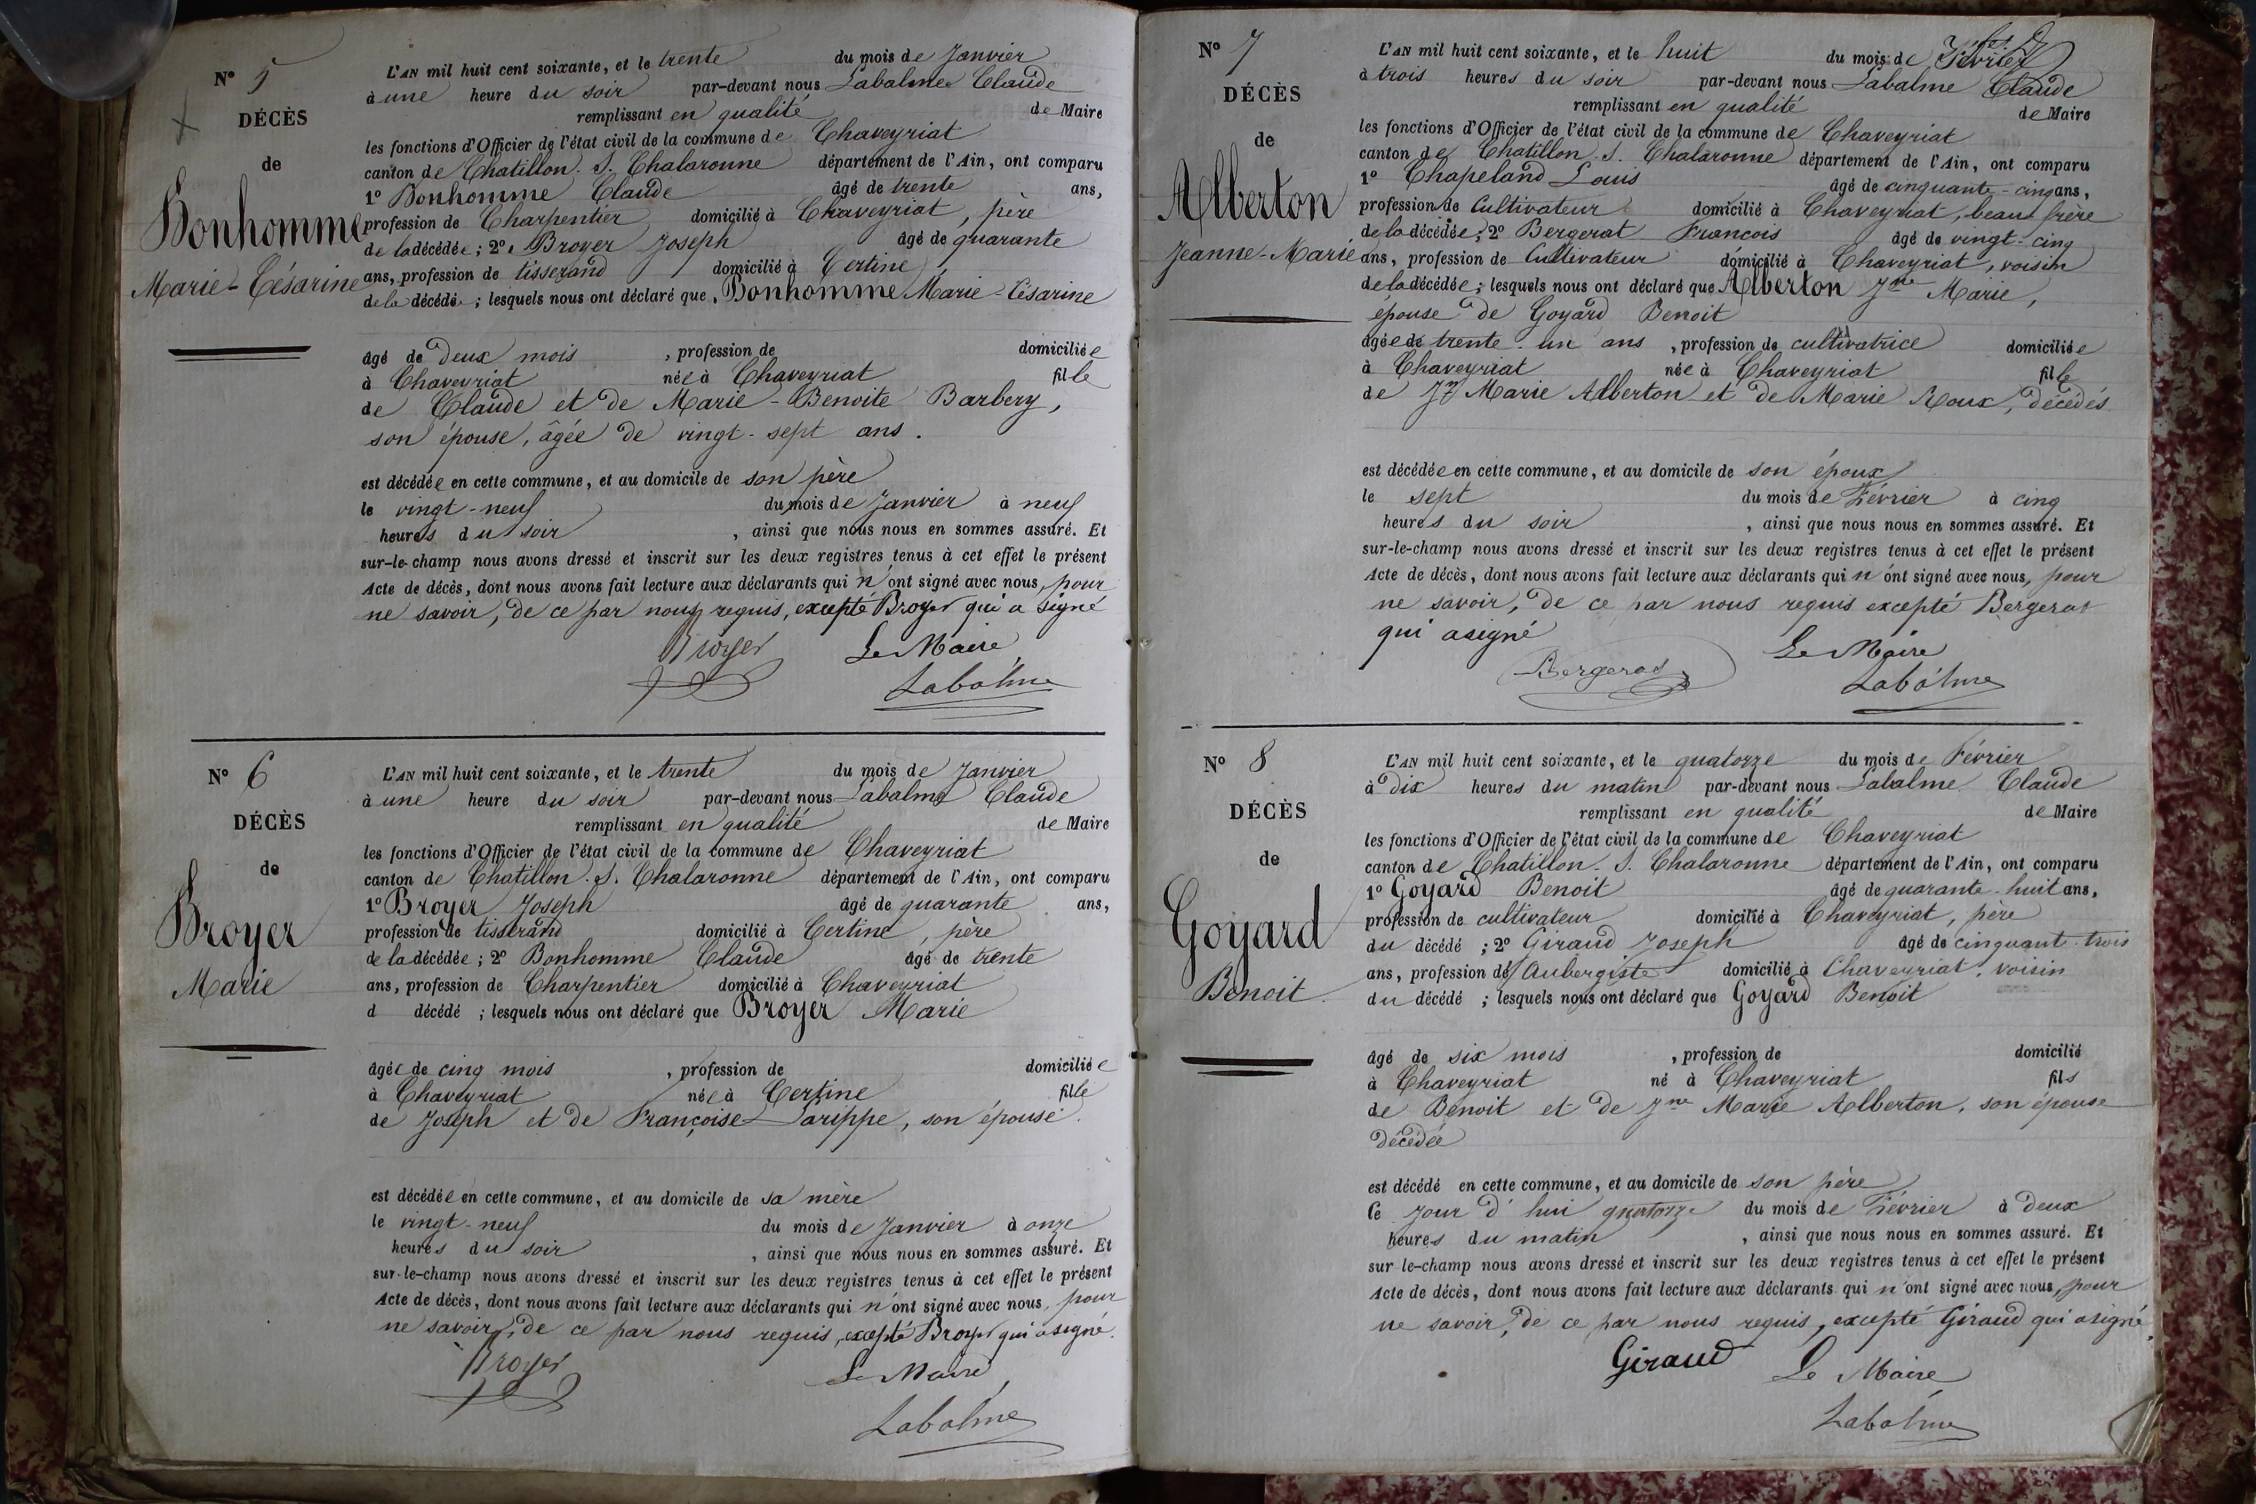 N° 5
DÉCÈS
de
Bonhomme
Marie-Césarine
L'AN mil huit cent soixante, et le trente du mois de Janvier
à une heure du soir par-devant nous Labalme Claude
remplissant en qualité de Maire
les fonctions d'Officier de l'état civil de la commune de Chaveyriat
canton de Chatillon. S. Chalaronne département de l'Ain, ont comparu
1° Bonhomme Claude âgé de trente ans,
profession de Charpentier domicilié à Chaveyriat, père
de la décédée; 2° Broyer Joseph âgé de quarante
ans, profession de tisserand domicilié à Certine
de la décédé ; lesquels nous ont déclaré que Bonhomme Marie-Césarine
âgé de deux mois , profession de domiciliée
à Chaveyriat née à Chaveyriat fille
de Claude et de Marie-Benoite Barbery,
son épouse, âgée de vingt-sept ans.
est décédée en cette commune, et au domicile de son père
le vingt-neuf du mois de Janvier à neuf
heures du soir , ainsi que nous nous en sommes assuré. Et
sur-le-champ nous avons dressé et inscrit sur les deux registres tenus à cet effet le présent
Acte de décès, dont nous avons fait lecture aux déclarants qui n'ont signé avec nous, pour
ne savoir, de ce par nous requis, excepté Broyer qui a signé
Broyer Le Maire
Labalme
N° 6
DÉCÈS
de
Broyer
Marie
L'AN mil huit cent soixante, et le trente du mois de Janvier
à une heure du soir par-devant nous Labalme Claude
remplissant en qualité de Maire
les fonctions d'Officier de l'état civil de la commune de Chaveyriat
canton de Chatillon. S. Chalaronne département de l'Ain, ont comparu
1° Broyer Joseph âgé de quarante ans,
profession de tisserand domicilié à Certine, père
de la décédée; 2° Bonhomme Claude âgé de trente
ans, profession de Charpentier domicilié à Chaveyriat
d décédé ; lesquels nous ont déclaré que Broyer Marie
âgée de cinq mois , profession de domiciliée
à Chaveyriat née à Certine fille
de Joseph et de Françoise Larippe, son épouse.
est décédée en cette commune, et au domicile de sa mère
le vingt-neuf du mois de Janvier à onze
heures du soir , ainsi que nous nous en sommes assuré. Et
sur-le-champ nous avons dressé et inscrit sur les deux registres tenus à cet effet le présent
Acte de décès, dont nous avons fait lecture aux déclarants qui n'ont signé avec nous, pour
ne savoir, de ce par nous requis, excepté Broyer qui a signé.
Broyer Le Maire
Labalme
N° 7
DÉCÈS
de
Alberton
Jeanne-Marie
L'AN mil huit cent soixante, et le huit du mois de Février
à trois heures du soir par-devant nous Labalme Claude
remplissant en qualité de Maire
les fonctions d'Officier de l'état civil de la commune de Chaveyriat
canton de Chatillon. S. Chalaronne département de l'Ain, ont comparu
1° Chapeland Louis âgé de cinquante-cinq ans,
profession de Cultivateur domicilié à Chaveyriat, beau frère
de la décédée; 2° Bergerat François âgé de vingt-cinq
ans, profession de Cultivateur domicilié à Chaveyriat, voisin
de la décédée; lesquels nous ont déclaré que Alberton Jne Marie,
épouse de Goyard Benoit
âgée de trente-un ans , profession de cultivatrice domiciliée
à Chaveyriat née à Chaveyriat fille
de Jn Marie Alberton et de Marie Roux, décédés
est décédée en cette commune, et au domicile de son époux
le sept du mois de Février à cinq
heures du soir , ainsi que nous nous en sommes assuré. Et
sur-le-champ nous avons dressé et inscrit sur les deux registres tenus à cet effet le présent
Acte de décès, dont nous avons fait lecture aux déclarants qui n'ont signé avec nous, pour
ne savoir, de ce par nous requis excepté Bergerat
qui a signé Le Maire
Bergerat Labalme
N° 8
DÉCÈS
de
Goyard
Benoit
L'AN mil huit cent soixante, et le quatorze du mois de Février
à dix heures du matin par-devant nous Labalme Claude
remplissant en qualité de Maire
les fonctions d'Officier de l'état civil de la commune de Chaveyriat
canton de Chatillon. S. Chalaronne département de l'Ain, ont comparu
1° Goyard Benoit âgé de quarante-huit ans,
profession de cultivateur domicilié à Chaveyriat, père
du décédé ; 2° Giraud Joseph âgé de cinquante-trois
ans, profession de Aubergiste domicilié à Chaveyriat, voisin
du décédé ; lesquels nous ont déclaré que Goyard Benoit
âgé de six mois , profession de domicilié
à Chaveyriat né à Chaveyriat fils
de Benoit et de Jne Marie Alberton, son épouse
décédée
est décédé en cette commune, et au domicile de son père
Ce jour d'hui quatorze du mois de Février à deux
heures du matin , ainsi que nous nous en sommes assuré. Et
sur-le-champ nous avons dressé et inscrit sur les deux registres tenus à cet effet le présent
Acte de décès, dont nous avons fait lecture aux déclarants qui n'ont signé avec nous, pour
ne savoir, de ce par nous requis, excepté Giraud qui a signé.
Giraud Le Maire
Labalme